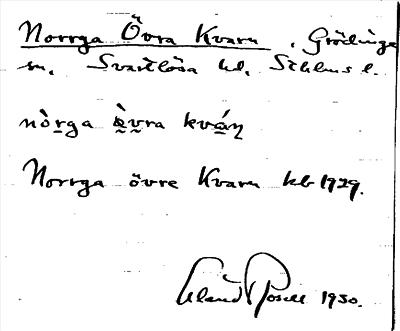 Norrga Övra Kvarn, Grödinge
sn, Svartlösa hd, Sthlms l.
nòrga ö̀vra kváṇ
Norrga övre Kvarn kb 1929.
Rosell 1930.